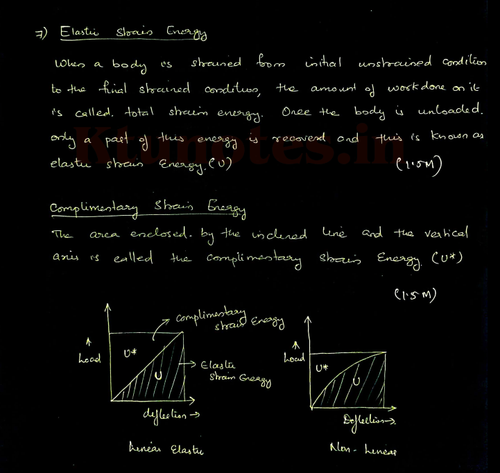 7) Elastic Strain Energy
When a body is strained from initial unstrained condition
to the final strained condition, the amount of workdone on it
is called total strain energy. Once the body is unloaded.
only a part of this energy is recovered and this is known as
elastic strain Energy. (U) (1.5M)
Complimentary Strain Energy
The area enclosed by the inclined line and the vertical
axis is called the complimentary Strain Energy (U*)
(1.5M)
complimentary
strain Energy
Load
U*
U
Elastic
Strain Energy
deflection →
Linear Elastic
Load
U*
U
Deflection →
Non-Linear
Ktunotes.in